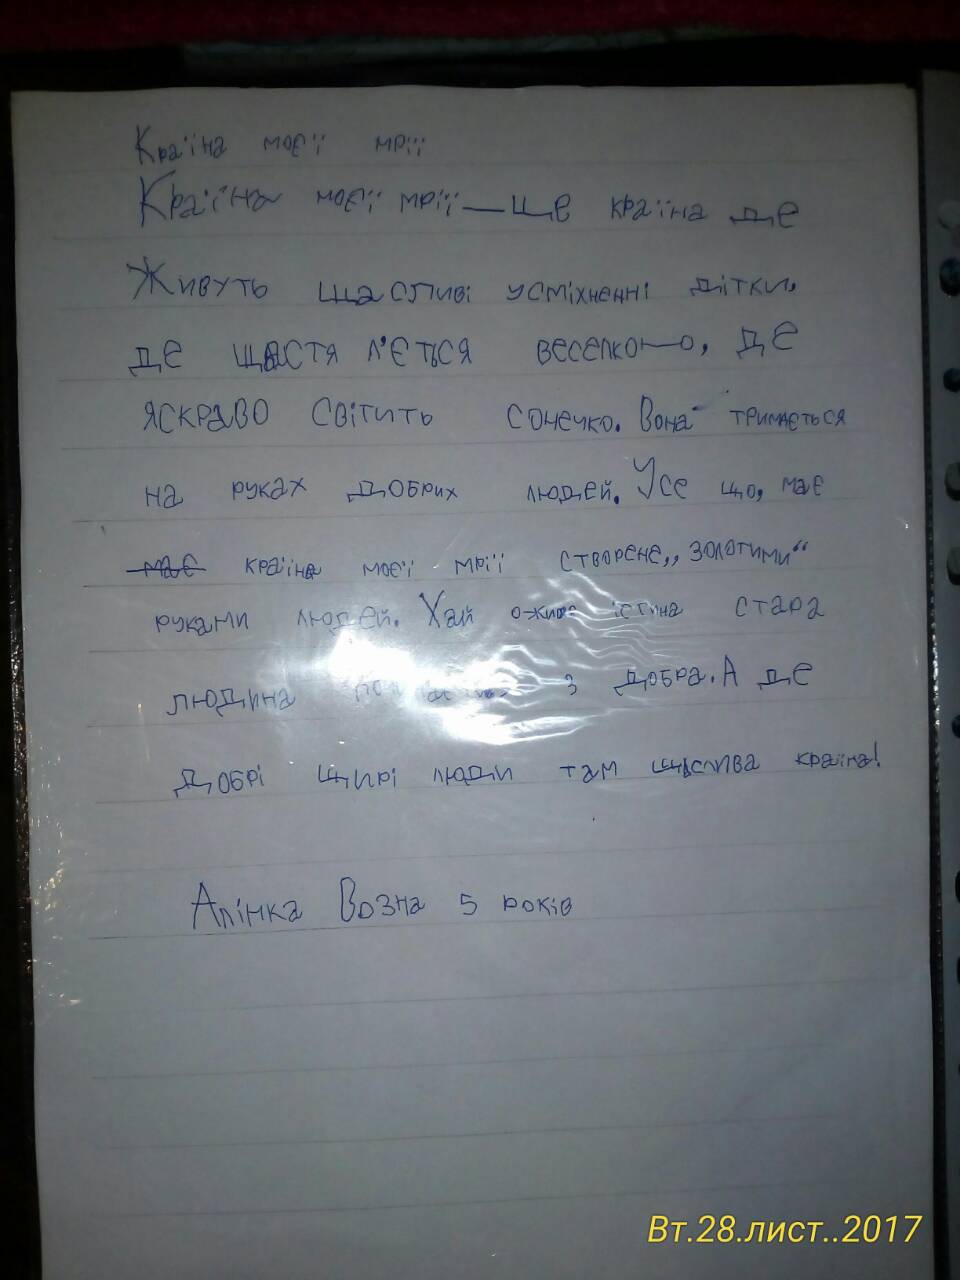 Країна моєї мрії
Країна моєї мрії — це країна де
живуть щасливі усміхненні дітки,
де щастя л'ється веселкою, де
яскраво світить сонечко. Вона тримається
на руках добрих людей. Усе що, має
має країна моєї мрії створене „золотими“
руками людей. Хай оживе істина стара
людина з добра. А де
добрі щирі люди там щаслива країна!
Алінка Возна 5 років
Вт.28.лист..2017